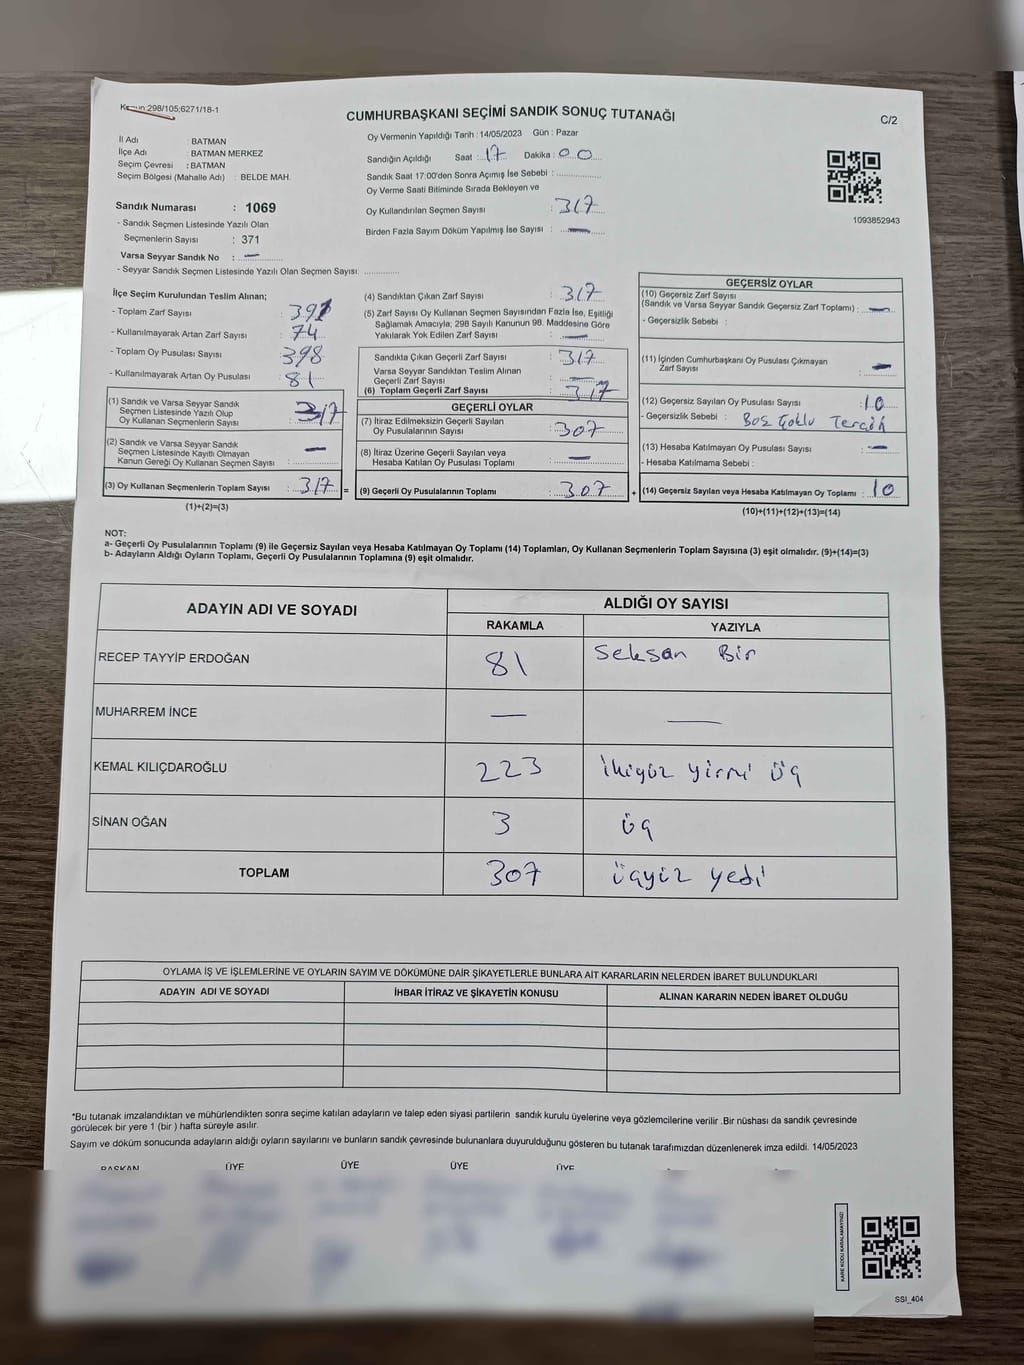 Kanun 298/105;6271/18-1
CUMHURBAŞKANI SEÇİMİ SANDIK SONUÇ TUTANAĞI
C/2
İl Adı : BATMAN
İlçe Adı : BATMAN MERKEZ
Seçim Çevresi : BATMAN
Seçim Bölgesi (Mahalle Adı) : BELDE MAH.
Sandık Numarası : 1069
- Sandık Seçmen Listesinde Yazılı Olan
Seçmenlerin Sayısı : 371
Varsa Seyyar Sandık No : —
- Seyyar Sandık Seçmen Listesinde Yazılı Olan Seçmen Sayısı: ............
Oy Vermenin Yapıldığı Tarih : 14/05/2023 Gün : Pazar
Sandığın Açıldığı Saat : 17 Dakika : 00
Sandık Saat 17:00'den Sonra Açımış İse Sebebi : ............
Oy Verme Saati Bitiminde Sırada Bekleyen ve
Oy Kullandırılan Seçmen Sayısı : 317
Birden Fazla Sayım Döküm Yapılmış İse Sayısı : —
1093852943
İlçe Seçim Kurulundan Teslim Alınan;
- Toplam Zarf Sayısı : 391
- Kullanılmayarak Artan Zarf Sayısı : 74
- Toplam Oy Pusulası Sayısı : 398
- Kullanılmayarak Artan Oy Pusulası : 81
(1) Sandık ve Varsa Seyyar Sandık
Seçmen Listesinde Yazılı Olup
Oy Kullanan Seçmenlerin Sayısı : 317
(2) Sandık ve Varsa Seyyar Sandık
Seçmen Listesinde Kayıtlı Olmayan
Kanun Gereği Oy Kullanan Seçmen Sayısı : —
(3) Oy Kullanan Seçmenlerin Toplam Sayısı : 317 =
(1)+(2)=(3)
(4) Sandıktan Çıkan Zarf Sayısı : 317
(5) Zarf Sayısı Oy Kullanan Seçmen Sayısından Fazla İse, Eşitliği
Sağlamak Amacıyla; 298 Sayılı Kanunun 98. Maddesine Göre
Yakılarak Yok Edilen Zarf Sayısı : —
Sandıkta Çıkan Geçerli Zarf Sayısı : 317
Varsa Seyyar Sandıktan Teslim Alınan
Geçerli Zarf Sayısı : —
(6) Toplam Geçerli Zarf Sayısı : 317
GEÇERLİ OYLAR
(7) İtiraz Edilmeksizin Geçerli Sayılan
Oy Pusulalarının Sayısı : 307
(8) İtiraz Üzerine Geçerli Sayılan veya
Hesaba Katılan Oy Pusulası Toplamı : —
(9) Geçerli Oy Pusulalarının Toplamı : 307 +
GEÇERSİZ OYLAR
(10) Geçersiz Zarf Sayısı
(Sandık ve Varsa Seyyar Sandık Geçersiz Zarf Toplamı) : —
- Geçersizlik Sebebi :
(11) İçinden Cumhurbaşkanı Oy Pusulası Çıkmayan
Zarf Sayısı : —
(12) Geçersiz Sayılan Oy Pusulası Sayısı : 10
- Geçersizlik Sebebi : Boş Çoklu Tercih
(13) Hesaba Katılmayan Oy Pusulası Sayısı : —
- Hesaba Katılmama Sebebi :
(14) Geçersiz Sayılan veya Hesaba Katılmayan Oy Toplamı : 10
(10)+(11)+(12)+(13)=(14)
NOT:
a- Geçerli Oy Pusulalarının Toplamı (9) ile Geçersiz Sayılan veya Hesaba Katılmayan Oy Toplamı (14) Toplamları, Oy Kullanan Seçmenlerin Toplam Sayısına (3) eşit olmalıdır. (9)+(14)=(3)
b- Adayların Aldığı Oyların Toplamı, Geçerli Oy Pusulalarının Toplamına (9) eşit olmalıdır.
ADAYIN ADI VE SOYADI ALDIĞI OY SAYISI
RAKAMLA YAZIYLA
RECEP TAYYİP ERDOĞAN 81 Seksan Bir
MUHARREM İNCE — —
KEMAL KILIÇDAROĞLU 223 İkiyüz yirmi üç
SİNAN OĞAN 3 üç
TOPLAM 307 üçyüz yedi
OYLAMA İŞ VE İŞLEMLERİNE VE OYLARIN SAYIM VE DÖKÜMÜNE DAİR ŞİKAYETLERLE BUNLARA AİT KARARLARIN NELERDEN İBARET BULUNDUKLARI
ADAYIN ADI VE SOYADI İHBAR İTİRAZ VE ŞİKAYETİN KONUSU ALINAN KARARIN NEDEN İBARET OLDUĞU
*Bu tutanak imzalandıktan ve mühürlendikten sonra seçime katılan adayların ve talep eden siyasi partilerin sandık kurulu üyelerine veya gözlemcilerine verilir .Bir nüshası da sandık çevresinde
görülecek bir yere 1 (bir ) hafta süreyle asılır.
Sayım ve döküm sonucunda adayların aldığı oyların sayılarını ve bunların sandık çevresinde bulunanlara duyurulduğunu gösteren bu tutanak tarafımızdan düzenlenerek imza edildi. 14/05/2023
BAŞKAN ÜYE ÜYE ÜYE ÜYE
KARE KODU KARALAMAYINIZ!
SSI_404